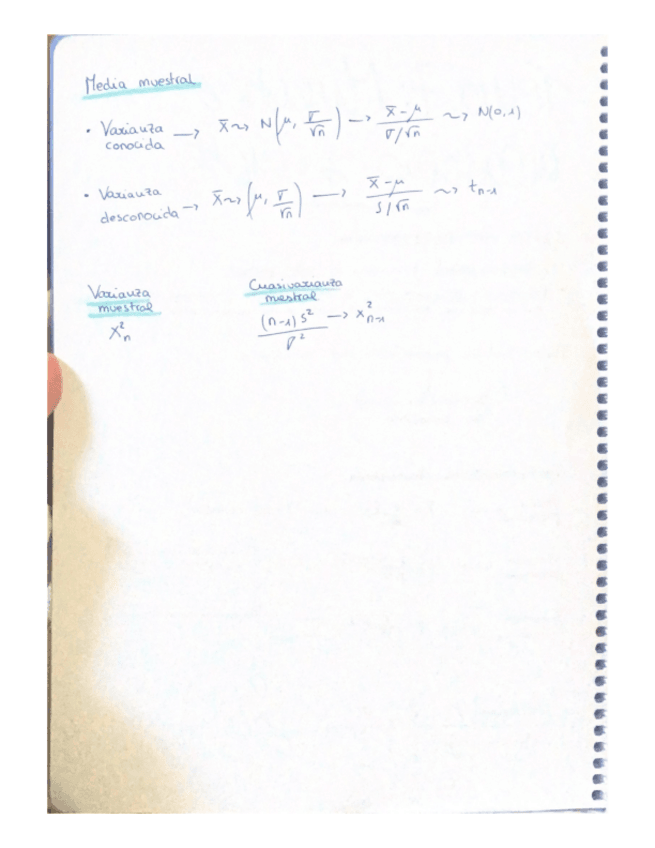 Media muestral
· Varianza conocida → x̄ ~> N(μ, σ/√n) → (x̄ - μ)/(σ/√n) ~> N(0,1)
· Varianza desconocida → x̄ ~> (μ, σ/√n) → (x̄ - μ)/(s/√n) ~> t n-1
Varianza muestral
χ² n
Cuasivarianza mestral
(n-1) s² / σ² → χ² n-1